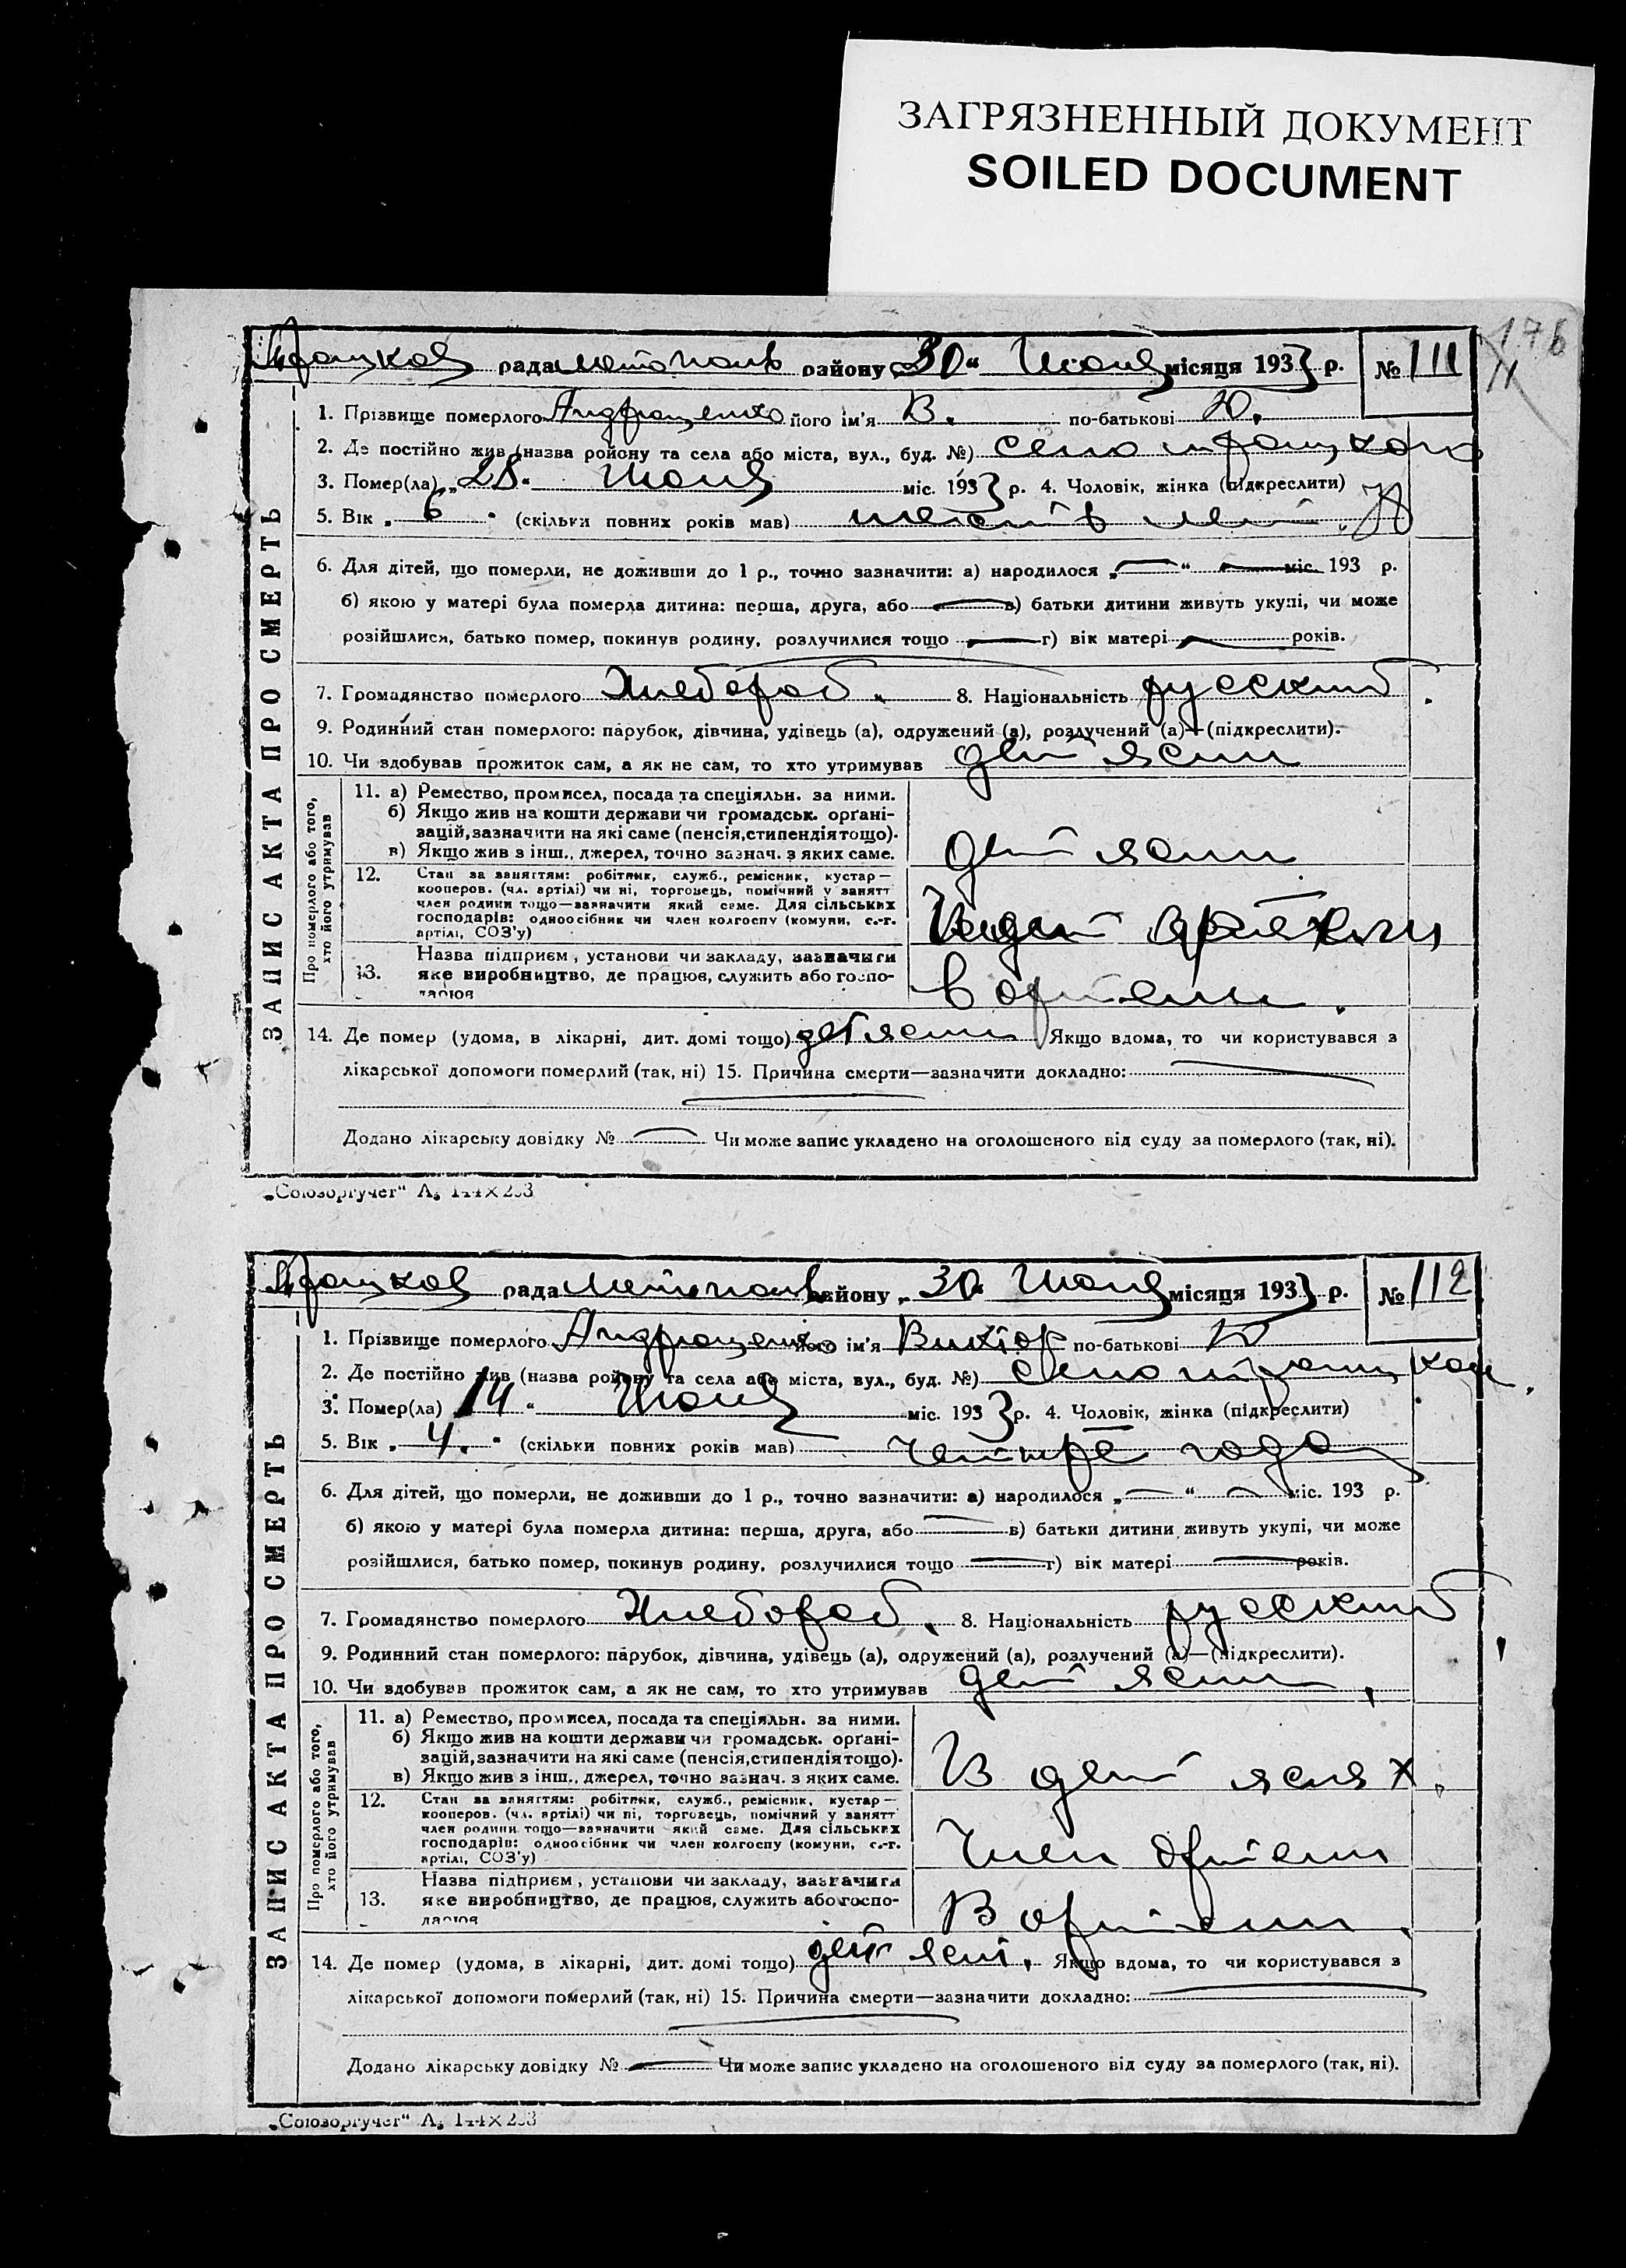 ЗАГРЯЗНЕННЫЙ ДОКУМЕНТ
SOILED DOCUMENT
176
рада район у „30“ Июня місяця 1933 р. № 111
ЗАПИС АКТА ПРО СМЕРТЬ
1. Прізвище померлого Андрющенко його ім'я В. по-батькові Ю.
2. Де постійно жив (назва ройону та села або міста, вул., буд. №) село
3. Помер(ла) „28“ Июня міс. 1933 р. 4. Чоловік, жінка (підкреслити)
5. Вік „6“ (скільки повних років мав) шесть лет
6. Для дітей, що померли, не доживши до 1 р., точно зазначити: а) народилося „ “ міс. 193 р.
б) якою у матері була померла дитина: перша, друга, або в) батьки дитини живуть укупі, чи може
розійшлися, батько помер, покинув родину, розлучилися тощо г) вік матері років.
7. Громадянство померлого Хлебороб. 8. Національність русский
9. Родинний стан померлого: парубок, дівчина, удівець (а), одружений (а), розлучений (а)—(підкреслити).
10. Чи здобував прожиток сам, а як не сам, то хто утримував дет ясли
Про померлого або того, хто його утримував
11. а) Ремество, промисел, посада та спеціяльн. за ними.
б) Якщо жив на кошти держави чи громадськ. орґані-
зацій, зазначити на які саме (пенсія, стипендія тощо).
в) Якщо жив з інш., джерел, точно зазнач. з яких саме.
дет ясли
12. Стан за заняттям: робітник, служб., ремісник, кустар—
кооперов. (чл. артілі) чи ні, торговець, помічний у занятт
член родини тощо—зазначити який саме. Для сільських
господарів: одноосібник чи член колгоспу (комуни, с.-г.
артілі, СОЗ'у)
13. Назва підприєм., установи чи закладу, зазначити
яке виробництво, де працює, служить або госпо-
дарює
В артели.
14. Де помер (удома, в лікарні, дит. домі тощо) дет ясли Якщо вдома, то чи користувався з
лікарської допомоги померлий (так, ні) 15. Причина смерти—зазначити докладно:
Додано лікарську довідку № Чи може запис укладено на оголошеного від суду за померлого (так, ні).
„Союзоргучет“ А₅ 144×203
рада району „30“ Июня місяця 1933 р. № 112
ЗАПИС АКТА ПРО СМЕРТЬ
1. Прізвище померлого Андрющенко його ім'я Виктор по-батькові Ю
2. Де постійно жив (назва ройону та села або міста, вул., буд. №) село
3. Помер(ла) 14 “ Июня міс. 1933 р. 4. Чоловік, жінка (підкреслити)
5. Вік „4.“ (скільки повних років мав) четыре года
6. Для дітей, що померли, не доживши до 1 р., точно зазначити: а) народилося „ “ міс. 193 р.
б) якою у матері була померла дитина: перша, друга, або в) батьки дитини живуть укупі, чи може
розійшлися, батько помер, покинув родину, розлучилися тощо г) вік матері років.
7. Громадянство померлого Хлебороб. 8. Національність русский
9. Родинний стан померлого: парубок, дівчина, удівець (а), одружений (а), розлучений (а)—(підкреслити).
10. Чи здобував прожиток сам, а як не сам, то хто утримував дет ясли,
Про померлого або того, хто його утримував
11. а) Ремество, промисел, посада та спеціяльн. за ними.
б) Якщо жив на кошти держави чи громадськ. орґані-
зацій, зазначити на які саме (пенсія, стипендія тощо).
в) Якщо жив з інш., джерел, точно зазнач. з яких саме.
В дет яслях.
12. Стан за заняттям: робітник, служб., ремісник, кустар—
кооперов. (чл. артілі) чи ні, торговець, помічний у занятт
член родини тощо—зазначити який саме. Для сільських
господарів: одноосібник чи член колгоспу (комуни, с.-г.
артілі, СОЗ'у)
Член артели
13. Назва підприєм., установи чи закладу, зазначити
яке виробництво, де працює, служить або госпо-
дарює
В артели.
14. Де помер (удома, в лікарні, дит. домі тощо) дет ясли. Якщо вдома, то чи користувався з
лікарської допомоги померлий (так, ні) 15. Причина смерти—зазначити докладно:
Додано лікарську довідку № Чи може запис укладено на оголошеного від суду за померлого (так, ні).
„Союзоргучет“ А₅ 144×203